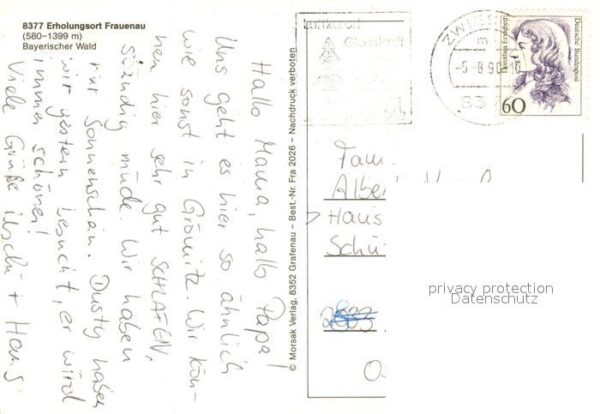 8377 Erholungsort Frauenau
(580–1399 m)
Bayerischer Wald
Hallo Mama, hallo Papa!
Uns geht es hier so ähnlich
wie sonst in Grömitz. Wir kön-
nen hier sehr gut SCHLAFEN,
ständig müde. Wir haben
nur Sonnenschein. Dusty haben
wir gestern besucht, er wird
immer schöner!
Viele Grüße + Hans
© Morsak Verlag, 8352 Grafenau – Best.-Nr. Fra 2026 – Nachdruck verboten
ZWIES
-5.-8.90
93
Deutsche Bundespost
60
Fam.
Haus
privacy protection
Datenschutz